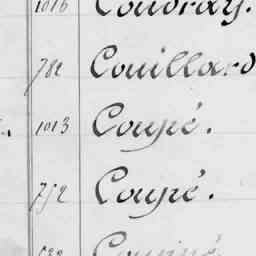 1016 Coudray.
782 Couillard
1013 Coupé.
752 Coupé.